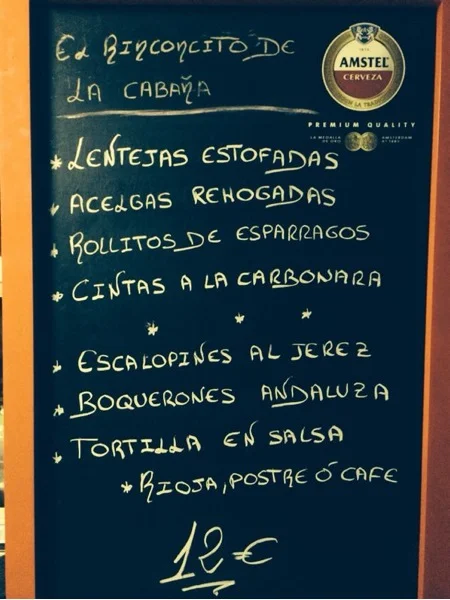 EL RINCONCITO DE
LA CABAÑA
AMSTEL
CERVEZA
PREMIUM QUALITY
* LENTEJAS ESTOFADAS
* ACELGAS REHOGADAS
* ROLLITOS DE ESPARRAGOS
* CINTAS A LA CARBONARA
* * *
* ESCALOPINES AL JEREZ
* BOQUERONES ANDALUZA
* TORTILLA EN SALSA
* RIOJA, POSTRE Ó CAFE
12€